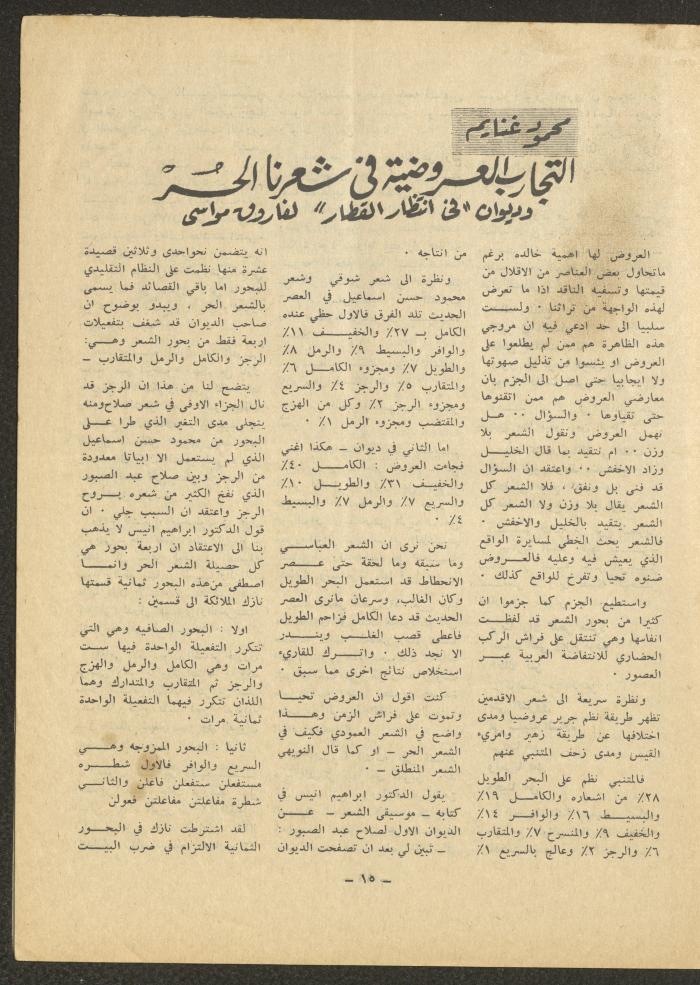 محمود غنايم
التجارب العروضية في شعرنا الحُرْ
وديوان "في انتظار القطار" لفاروق مواسي
العروض لها اهمية خالده برغم
ماتحاول بعض العناصر من الاقلال من
قيمتها وتسفيه الناقد اذا ما تعرض
لهذه الواجهة من تراثنا ٠ ولسست
سلبيا الى حد ادعي فيه ان مروجي
هذه الظاهرة هم ممن لم يطلعوا على
العروض او يئسوا من تذليل صهوتها
ولا ايجابيا حتى اصل الى الجزم بان
معارضي العروض هم ممن اتقنوها
حتى تقياوها ٠ والسؤال ٠٠ هل
نهمل العروض ونقول الشعر بلا
وزن ٠٠ ام نتقيد بما قال الخليل
وزاد الاخفش ٠٠ واعتقد ان السؤال
قد فنى بل ونفق ، فلا الشعر كل
الشعر يقال بلا وزن ولا الشعر كل
الشعر يتقيد بالخليل والاخفش ٠
فالشعر يحث الخطى لمسايرة الواقع
الذي يعيش فيه وعليه فالعروض
ضنوه تحيا وتفرخ للواقع كذلك ٠
واستطيع الجزم كما جزموا ان
كثيرا من بحور الشعر قد لفظت
انفاسها وهي تنتقل على فراش الركب
الحضاري للانتفاضة العربية عبر
العصور ٠
ونظرة سريعة الى شعر الاقدمين
تظهر طريقة نظم جرير عروضيا ومدى
اختلافها عن طريقة زهير وامريء
القيس ومدى زحف المتنبي عنهم
فالمتنبي نظم على البحر الطويل
٢٨٪ من اشعاره والكامل ١٩٪
والبسيط ١٦٪ والوافر ١٤٪
والخفيف ٩٪ والمنسرح ٧٪ والمتقارب
٦٪ والرجز ٢٪ وعالج بالسريع ١٪
من انتاجه ٠
ونظرة الى شعر شوقي وشعر
محمود حسن اسماعيل في العصر
الحديث تلد الفرق فالاول حظي عنده
الكامل بـ ٢٧٪ والخفيف ١١٪
والوافر والبسيط ٩٪ والرمل ٨٪
والطويل ٧٪ ومجزوء الكامل ٦٪
والمتقارب ٥٪ والرجز ٤٪ والسريع
ومجزوء الرجز ٢٪ وكل من الهزج
والمقتضب ومجزوء الرمل ١٪ ٠
اما الثاني في ديوان ـ هكذا اغني
فجاءت العروض : الكامل ٤٠٪
والخفيف ٣١٪ والطويل ١٠٪
والسريع ٧٪ والرمل ٧٪ والبسيط
٤٪ ٠
نحن نرى ان الشعر العباسي
وما سبقه وما لحقة حتى عصر
الانحطاط قد استعمل البحر الطويل
وكان الغالب، وسرعان مانرى العصر
الحديث قد دعا الكامل فزاحم الطويل
فاعطى قصب الغلب ويندر
الا نجد ذلك ٠ واترك للقاريء
استخلاص نتائج اخرى مما سبق ٠
كنت اقول ان العروض تحيا
وتموت على فراش الزمن وهذا
واضح في الشعر العمودي فكيف في
الشعر الحر ـ او كما قال النويهي
الشعر المنطلق ـ ٠
يقول الدكتور ابراهيم انيس في
كتابه ـ موسيقى الشعر ـ عن
الديوان الاول لصلاح عبد الصبور :
ـ تبين لي بعد ان تصفحت الديوان
انه يتضمن نحواحدى وثلاثين قصيدة
عشرة منها نظمت على النظام التقليدي
للبحور اما باقي القصائد فما يسمى
بالشعر الحر ، ويبدو بوضوح ان
صاحب الديوان قد شغف بتفعيلات
اربعة فقط من بحور الشعر وهي:
الرجز والكامل والرمل والمتقارب ـ
يتضح لنا من هذا ان الرجز قد
نال الجزاء الاوفى في شعر صلاح ومنه
ينجلي مدى التغير الذي طرا على
البحور من محمود حسن اسماعيل
الذي لم يستعمل الا ابياتا معدودة
من الرجز وبين صلاح عبد الصبور
الذي نفخ الكثير من شعره بروح
الرجز واعتقد ان السبب جلي ٠ ان
قول الدكتور ابراهيم انيس لا يذهب
بنا الى الاعتقاد ان اربعة بحور هي
كل حصيلة الشعر الحر وانما
اصطفى من هذه البحور ثمانية قسمتها
نازك الملائكة الى قسمين :
اولا : البحور الصافيه وهي التي
تتكرر التفعيلة الواحدة فيها ست
مرات وهي الكامل والرمل والهزج
والرجز ثم المتقارب والمتدارك وهما
اللذان تتكرر فيهما التفعيلة الواحدة
ثمانية مرات ٠
ثانيا : البحور الممزوجه وهي
السريع والوافر فالاول شطره
مستفعلن ستفعلن فاعلن والثاني
شطرة مفاعلتن مفاعلتن فعولن
لقد اشترطت نازك في البحور
الثمانية الالتزام في ضرب البيت
ـ ١٥ ـ